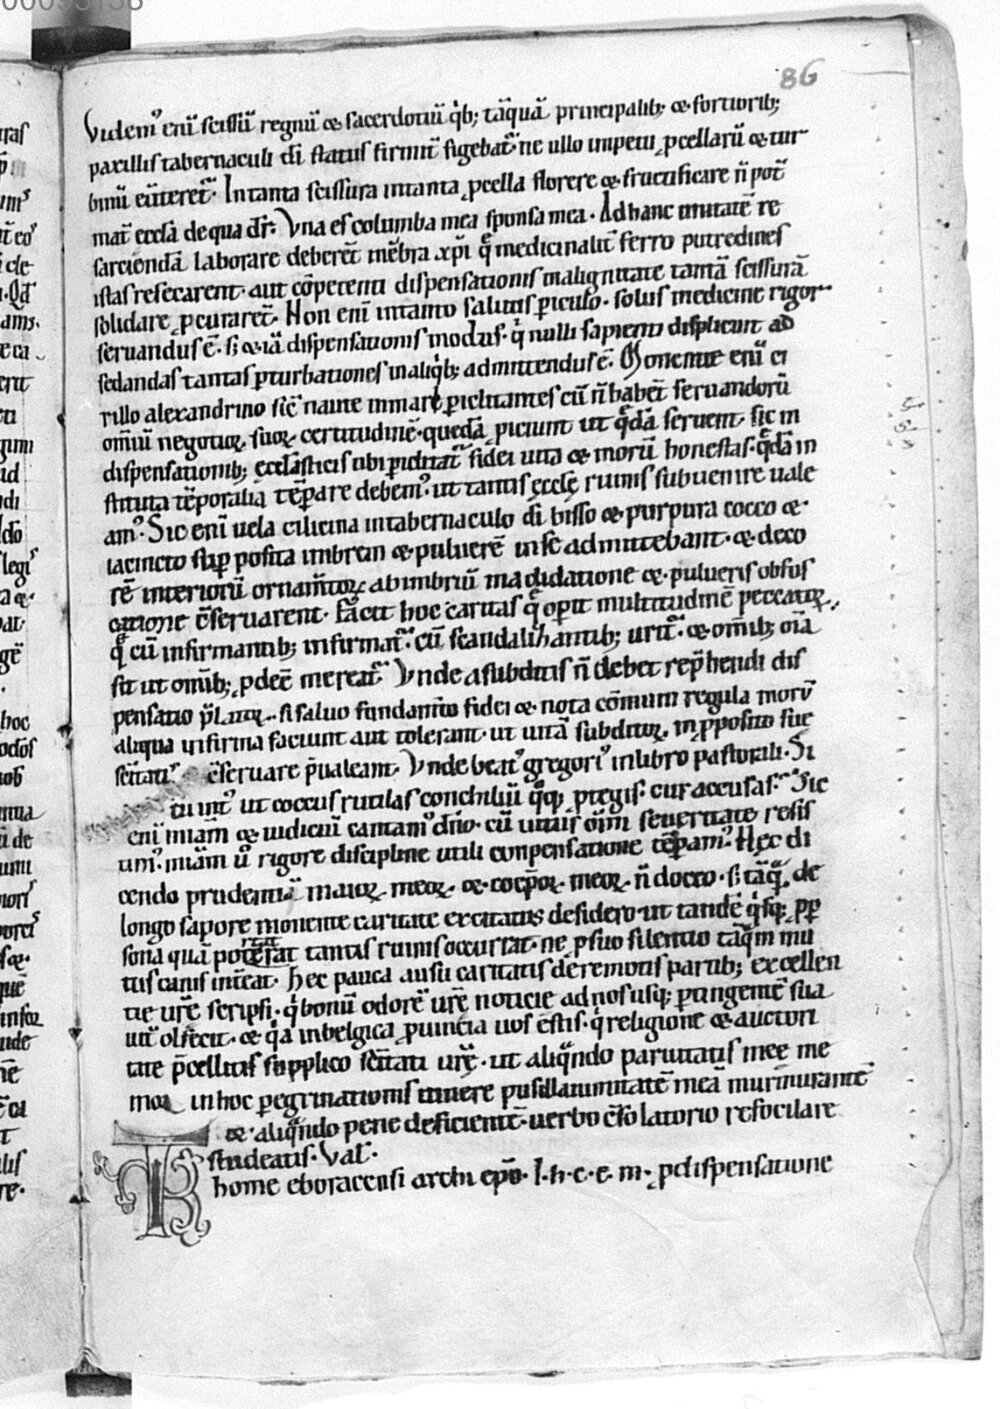 86
Videm᷒ enī scissū regnū ⁊ sacerdotiū qͥb; tāquā principalib; ⁊ fortiorib;
paxillis tabernaculi dī status firmit̄ figebat᷒ ne ullo impetu ꝓcellarū ⁊ tur
binū eūteret᷒. In tanta scissura in tanta ꝓcella florere ⁊ fructificare n̄ pot̄
mat̄ eccła de qua dr̄. Vna es columba mea sponsa mea. Ad hanc unitatē re
sarciendā laborare deberēt mēbra xp̄i q̄ medicinalit̄ ferro putredines
istas resecarent. aut cōpetenti dispensationis malignitate tantā scissurā
solidare ꝓcurarēt. Non enī in tanto salutis ꝑiculo. solus medicine rigor
seruandus ē. s; ⁊ iā dispensationis modus. qͥ nulli sapienti displicuit ad
sedandas tantas ꝑturbationes in aliqͥb; admittendus ē. Monente enī ci
rillo alexandrino sic̄ naute in mari ꝑiclitantes cū n̄ habēt seruandorū
om̄iū negotioꝝ suoꝝ certitudinē. quedā ꝓiciunt ut q̄dā seruent. sic in
dispensationib; ecclāsticis ubi ꝑiclitat᷒ fidei uita ⁊ morū honestas. q̄dā in
stituta tēporalia tēꝑare debem᷒. ut tantis ecclę ruinis subuenire uale
am᷒. Sic enī uela cilicina in tabernaculo dī bisso ⁊ purpura cocco ⁊
iacincto suꝑ posita imbrem ⁊ puluerē in se admittebant. ⁊ deco
rē interiorū ornam̄toꝝ ab imbriū madidatione ⁊ pulueris obfus
catione c̄seruarent. Facit hoc caritas q̄ opit multitudinē peccatoꝝ.
q̄ cū infirmantib; infirmat᷒. cū scandalizantib; urit᷒. ⁊ om̄ib; oīa
fit ut om̄ib; ꝓdeē mereat᷒. Vnde a subditis n̄ debet rep̄hendi dis
pensatio p̄latoꝝ. si saluo fundam̄to fidei ⁊ nota cōmuni regula morū
aliqua infirma faciunt aut tolerant. ut uitā subditoꝝ in ꝓposito sue
sc̄itatis c̄seruare p̄ualeant. Vnde beat᷒ gregori᷒ in libro pastorali. Si
tu int᷒ ut coccus rutilas conchiliū qͦꝗ ꝓtegis. cur accusas. Sic
enī miām ⁊ iudiciū cantam᷒ dn̄o. cū uitiis oīm seueritate resis
tim᷒. miām ū rigore discipline utili conpensatione tēꝑam᷒. Hęc di
cendo prudentiā maioꝝ meoꝝ ⁊ coep̄oꝝ meoꝝ n̄ doceo. s; tāꝗ de
longo sapore monente caritate excitatus desidero ut tandē qͥsꝗ ꝓ ꝑ
sona quā poterat tantis ruinis occurrat. ne ꝓ suo silentio tāꝗm mu
tus canis inueat. Hec pauca ausu caritatis de remotis partib; excellen
tie ur̄e scripsi. qͥ bonū odorē ur̄e noticie ad nos usꝗ; ꝑtingentē sua
uit̄ olfecit. ⁊ qͥa in belgica ꝓuincia uos estis. qͥ religione ⁊ auctori
tate p̄cellitis supplico sc̄itati ur̄e. ut aliqn̄do paruitatis mee me
mores in hoc peregrinationis itinere pusillanimitatē meā murmurantē
⁊ aliqn̄do pene deficientē. uerbo c̄solatorio refocilare
studeatis. Val̄.
Thome eboracensi archi ep̄o. I. h. c. e. m. ꝓ dispensatione